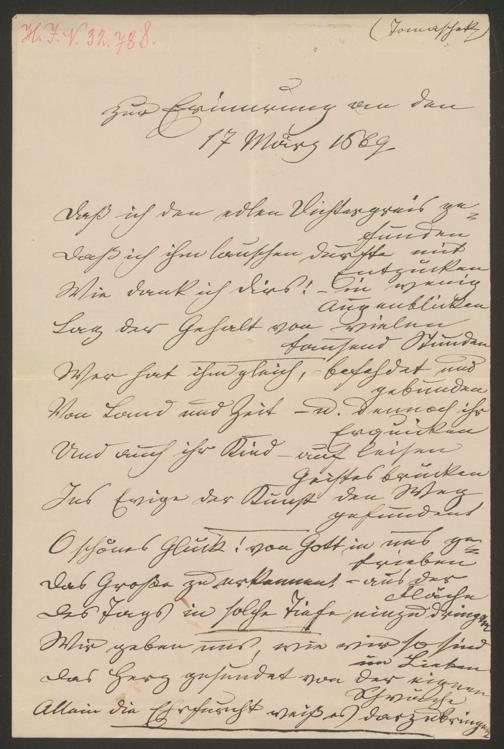 H. I. N. 32.788.
(Tomaschek)
Zur Erinnerung an den
17 März 1869
Daß ich den edlen Dichtergreis ge-
funden
Daß ich ihm lauschen durfte mit
Entzücken
Wie dank ich dirs! – in wenig
Augenblicken
Lag der Gehalt von vielen
tausend Stunden
Wer hat ihm gleich, – befehdet und
gebunden
Von Land und Zeit – u. dennoch ihr
Erquicken
Und auch ihr Kind – auf leisen
Geistesbrücken
Ins Ewige der Kunst den Weg
gefunden!
O schönes Glück! von Gott in uns ge-
trieben
Das Große zu erkennen – aus der
Fläche
Des Tags in solche Tiefe einzudringen
Wir geben uns, wie wir so sind
im Lieben
Das Herz gesundet von der eignen
Schwäche
Allein die Ehrfurcht weiß es darzubringen